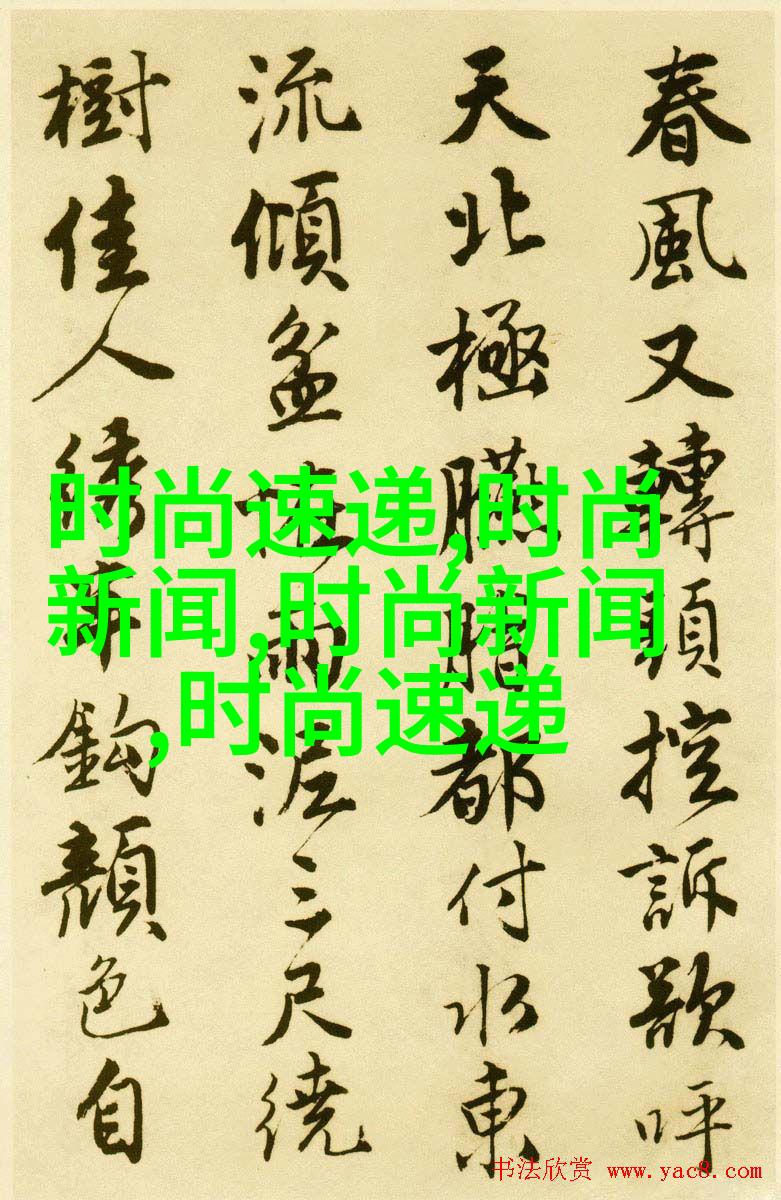 春風又轉頭控訴欲呼
天北極臙脂都付水東
流傾盆怪雨泥三尺繞
樹佳人繡半鈎顏色自
时尚速递,时尚
新闻,时尚新闻
,时尚速递
书法欣赏 www.yac8.com